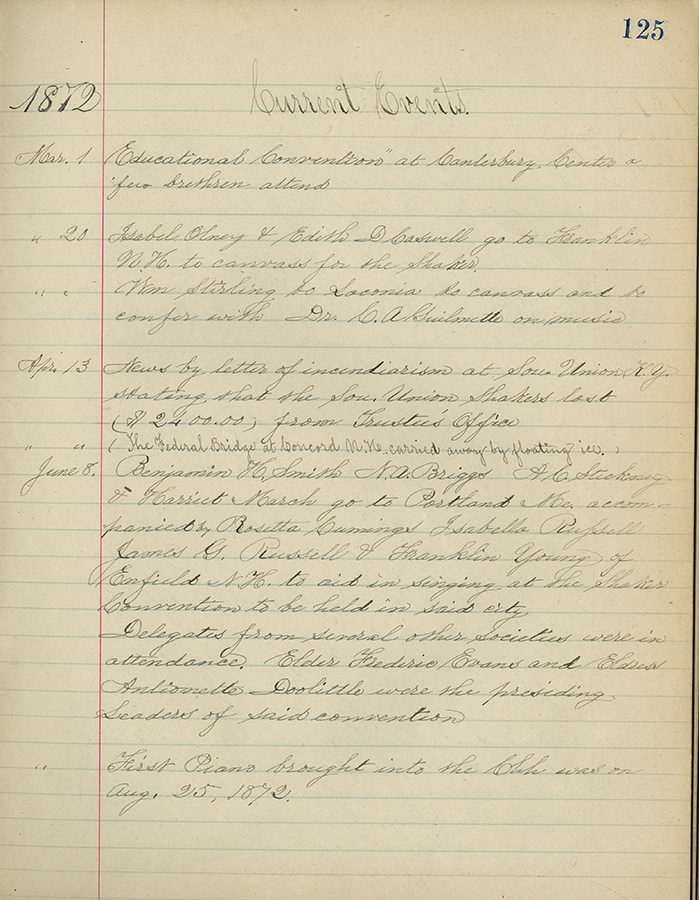 125
1872 Current Events.
Mar. 1 Educational Convention" at Canterbury Center a
few brethren attend
" 20 Isabel Olney & Edith D Caswell go to Franklin
N.H. to canvass for the Shaker.
" " Wm Stirling to Laconia to canvass and to
confer with Dr. C. A Guilmette on music
Apr. 13 News by letter of incendiarism at Sou. Union K.Y.
stating that the Sou. Union Shakers lost
($ 2400.00) from Trustee's Office
" " (The Federal Bridge at Concord N.H. carried away by floating ice.)
June 8. Benjamin H. Smith N. A. Briggs A C Stickney
& Harriet March go to Portland Me. accom-
panied by Rosetta Cumings Isabella Russell
James G. Russell & Franklin Young of
Enfield N.H. to aid in singing at the Shaker
Convention to be held in said city
Delegates from several other societies were in
attendance. Elder Frederic Evans and Eldress
Antionette Doolittle were the presiding
Leaders of said convention
" First Piano brought into the Chh was on
Aug. 25, 1872.